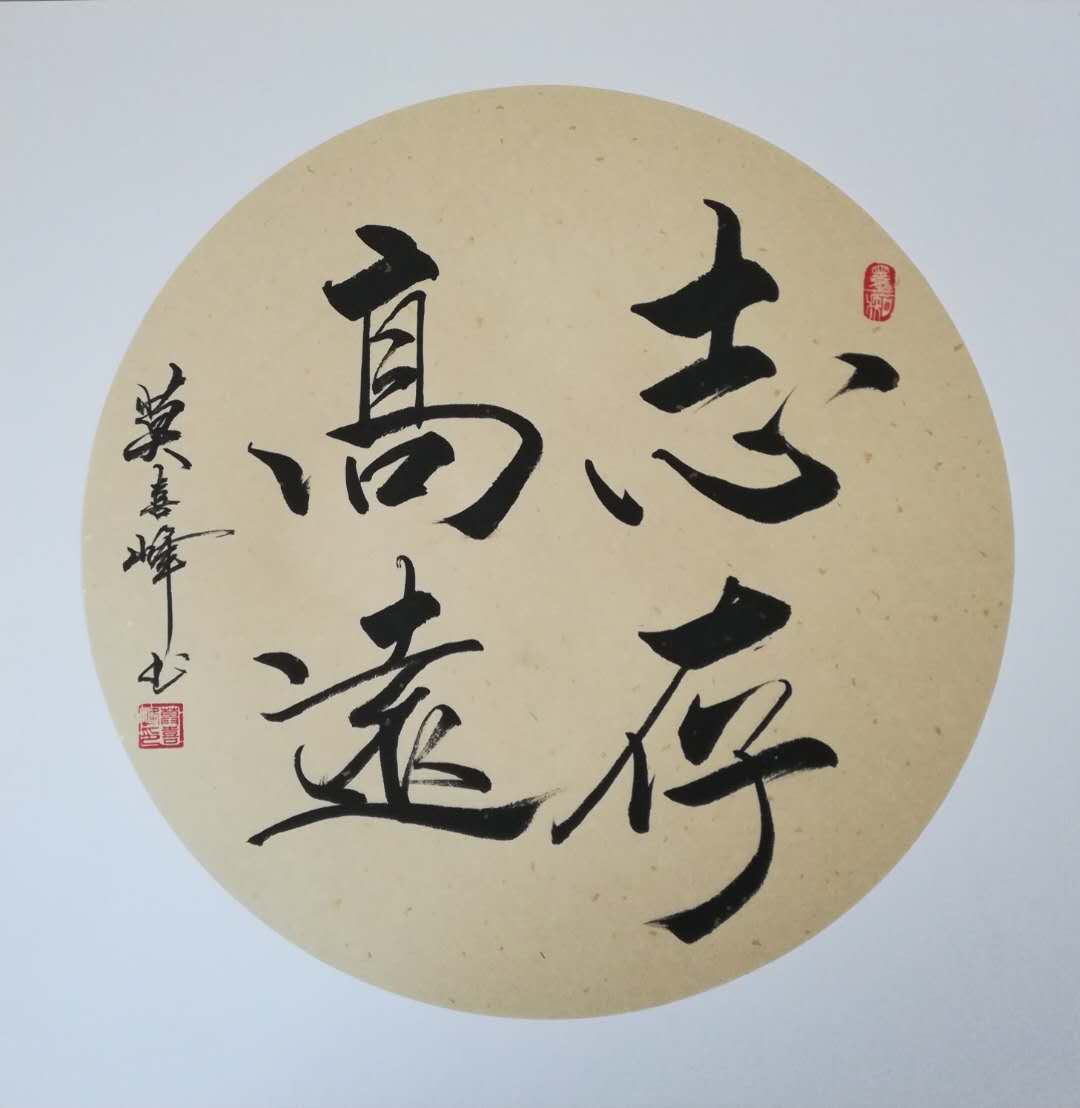 志存
高遠
莫喜峰书